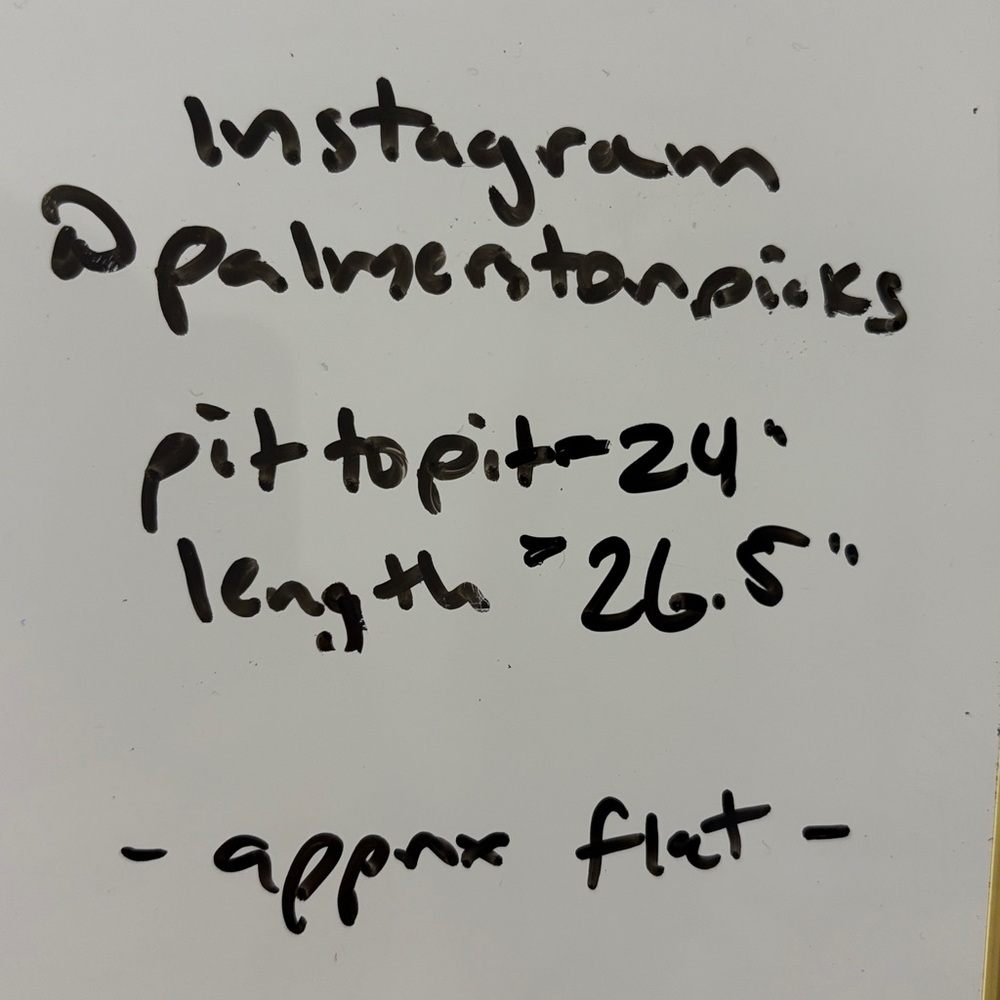 Instagram
@palmerstonpicks
pit to pit - 24"
length - 26.5"
- apprx flat -